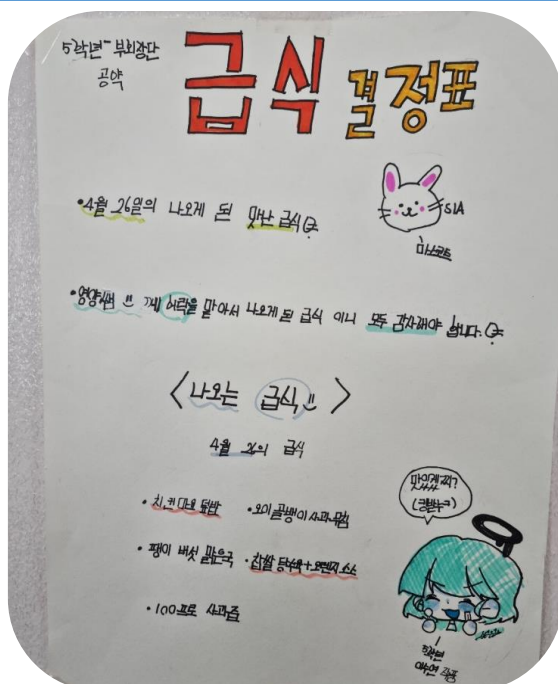 5학년 부회장단
공약
급식 결정표
•4월 26일의 나오게 된 맛난 급식
SIA
마스코트
•영양쌤 께 허락을 맡아서 나오게 된 급식 이니 모두 감사해야 합니다.
<나오는 급식>
4월 26의 급식
•치킨마요 덮밥
•오이골뱅이사과무침
•팽이 버섯 맑은국
•찹쌀 탕수육+오렌지 소스
•100프로 사과즙
맛있겠찌?
5학년